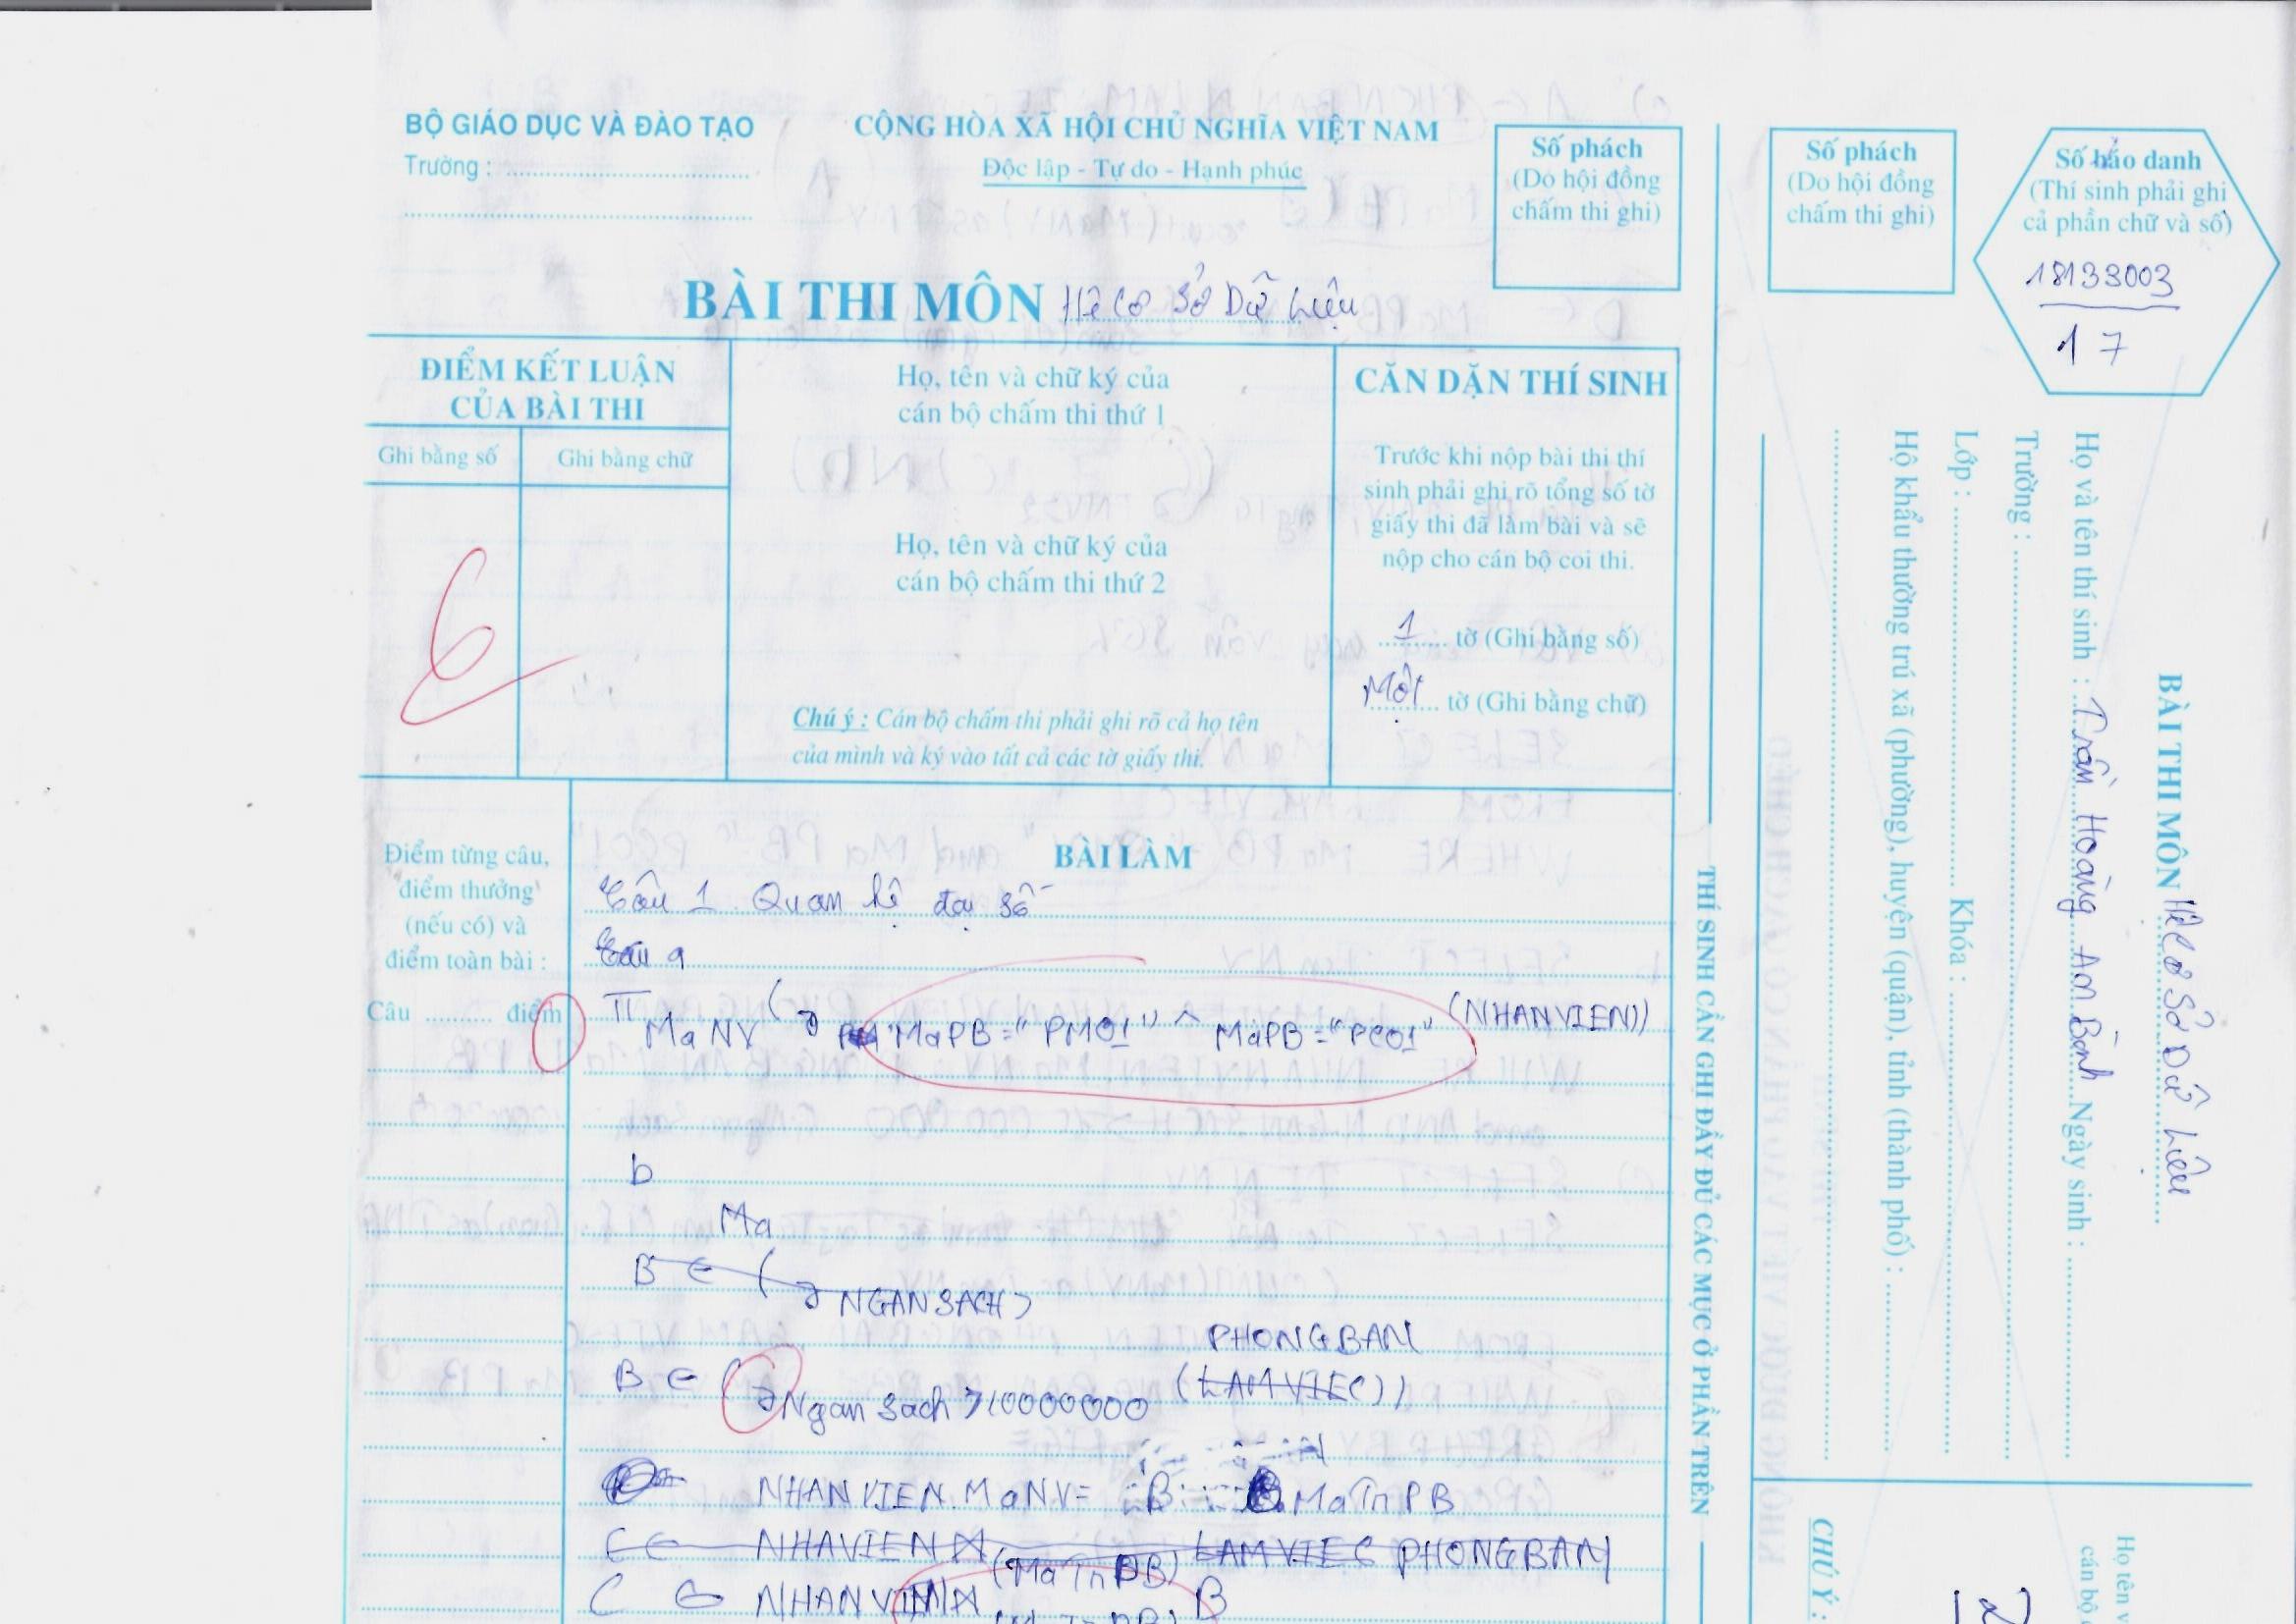 BỘ GIÁO DỤC VÀ ĐÀO TẠO
Trường :
CỘNG HÒA XÃ HỘI CHỦ NGHĨA VIỆT NAM
Độc lập - Tự do - Hạnh phúc
Số phách
(Do hội đồng
chấm thi ghi)
BÀI THI MÔN Hệ Cơ Sở Dữ Liệu
ĐIỂM KẾT LUẬN
CỦA BÀI THI
Ghi bằng số
Ghi bằng chữ
6
Họ, tên và chữ ký của
cán bộ chấm thi thứ 1
Họ, tên và chữ ký của
cán bộ chấm thi thứ 2
Chú ý : Cán bộ chấm thi phải ghi rõ cả họ tên
của mình và ký vào tất cả các tờ giấy thi.
CĂN DẶN THÍ SINH
Trước khi nộp bài thi thí
sinh phải ghi rõ tổng số tờ
giấy thi đã làm bài và sẽ
nộp cho cán bộ coi thi.
1 tờ (Ghi bằng số)
Một tờ (Ghi bằng chữ)
Điểm từng câu,
điểm thưởng
(nếu có) và
điểm toàn bài :
Câu .......... điểm
BÀI LÀM
Câu 1. Quan hệ đại số
Câu a
π MaNV (σ MaPB = "PM01" ^ MaPB = "PC01" (NHANVIEN))
b
Ma
B ← (σ NGANSACH >
PHONGBAN
B ← (σ Ngan sach > 10000000 (LAMVIEC))
NHANVIEN.MaNV = B.MaTnPB
C ← NHAVIEN ⋈ LAMVIEC PHONGBAN
(MaTnPB)
C ← NHANVIEN ⋈ B
THÍ SINH CẦN GHI ĐẦY ĐỦ CÁC MỤC Ở PHẦN TRÊN
Số phách
(Do hội đồng
chấm thi ghi)
Số báo danh
(Thí sinh phải ghi
cả phần chữ và số)
18133003
17
BÀI THI MÔN Hệ Cơ Sở Dữ Liệu
Họ và tên thí sinh : Trần Hoàng An Bình Ngày sinh :
Trường :
Lớp : Khóa :
Hộ khẩu thường trú xã (phường), huyện (quận), tỉnh (thành phố) :
Họ tên v
cán bộ
CHÚ Ý :